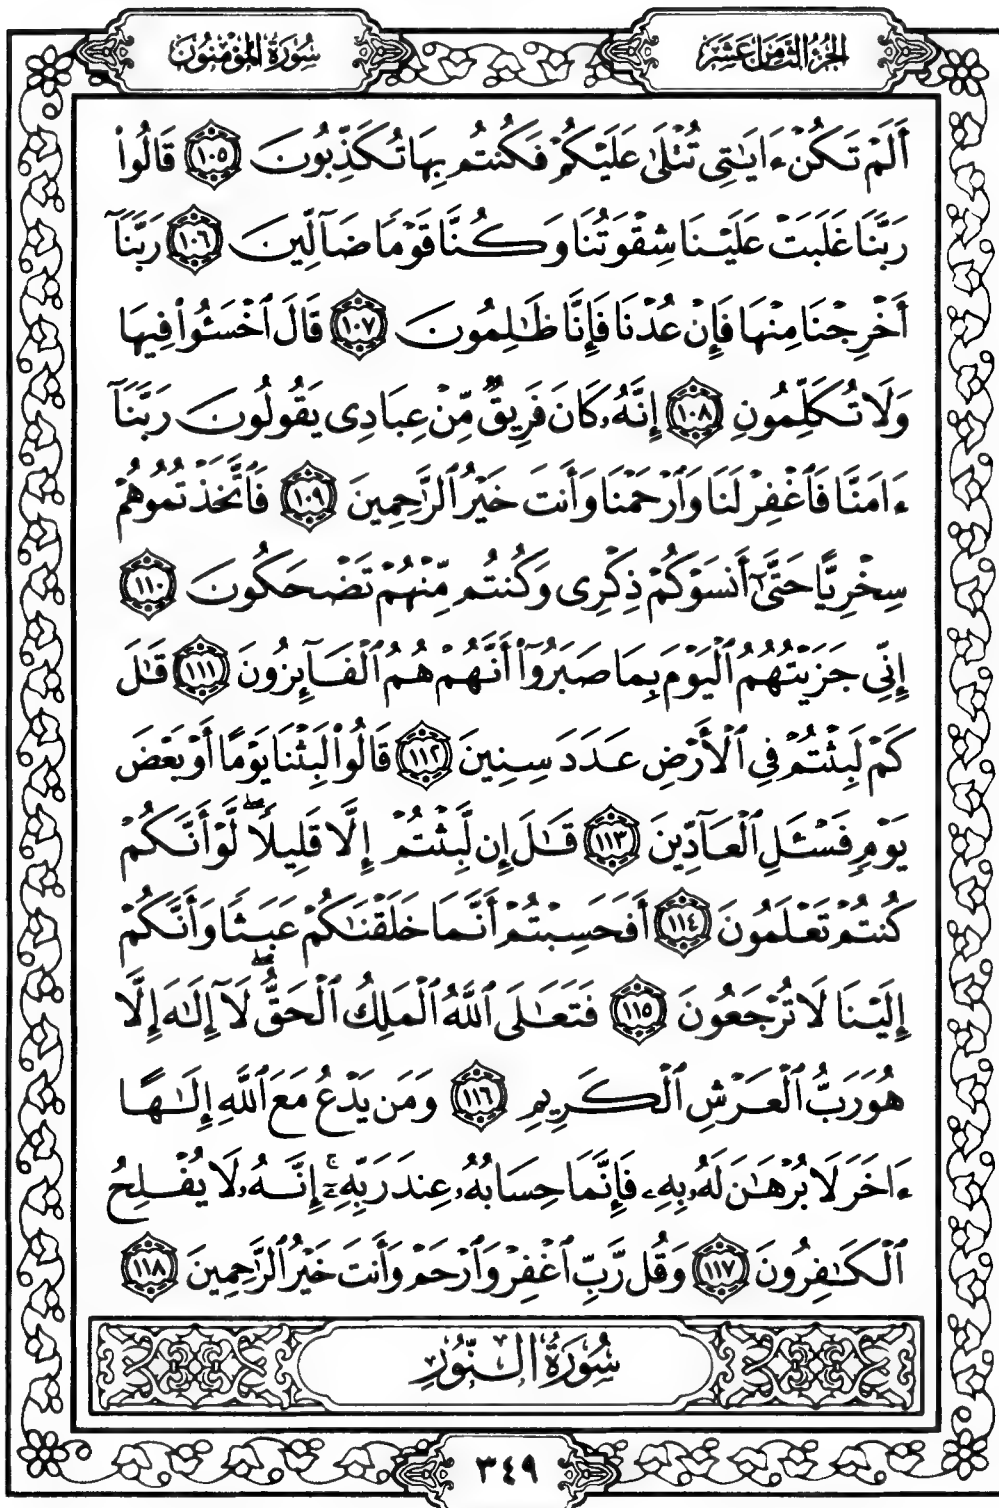 الجزء الثامن عشر
سورة المؤمنون
أَلَمْ تَكُنْ ءَايَٰتِى تُتْلَىٰ عَلَيْكُمْ فَكُنتُم بِهَا تُكَذِّبُونَ ١٠٥ قَالُوا۟
رَبَّنَا غَلَبَتْ عَلَيْنَا شِقْوَتُنَا وَكُنَّا قَوْمًا ضَآلِّينَ ١٠٦ رَبَّنَآ
أَخْرِجْنَا مِنْهَا فَإِنْ عُدْنَا فَإِنَّا ظَٰلِمُونَ ١٠٧ قَالَ ٱخْسَـُٔوا۟ فِيهَا
وَلَا تُكَلِّمُونِ ١٠٨ إِنَّهُۥ كَانَ فَرِيقٌ مِّنْ عِبَادِى يَقُولُونَ رَبَّنَآ
ءَامَنَّا فَٱغْفِرْ لَنَا وَٱرْحَمْنَا وَأَنتَ خَيْرُ ٱلرَّٰحِمِينَ ١٠٩ فَٱتَّخَذْتُمُوهُمْ
سِخْرِيًّا حَتَّىٰٓ أَنسَوْكُمْ ذِكْرِى وَكُنتُم مِّنْهُمْ تَضْحَكُونَ ١١٠
إِنِّى جَزَيْتُهُمُ ٱلْيَوْمَ بِمَا صَبَرُوٓا۟ أَنَّهُمْ هُمُ ٱلْفَآئِزُونَ ١١١ قَٰلَ
كَمْ لَبِثْتُمْ فِى ٱلْأَرْضِ عَدَدَ سِنِينَ ١١٢ قَالُوا۟ لَبِثْنَا يَوْمًا أَوْ بَعْضَ
يَوْمٍ فَسْـَٔلِ ٱلْعَآدِّينَ ١١٣ قَٰلَ إِن لَّبِثْتُمْ إِلَّا قَلِيلًا ۖ لَّوْ أَنَّكُمْ
كُنتُمْ تَعْلَمُونَ ١١٤ أَفَحَسِبْتُمْ أَنَّمَا خَلَقْنَٰكُمْ عَبَثًا وَأَنَّكُمْ
إِلَيْنَا لَا تُرْجَعُونَ ١١٥ فَتَعَٰلَى ٱللَّهُ ٱلْمَلِكُ ٱلْحَقُّ ۖ لَآ إِلَٰهَ إِلَّا
هُوَ رَبُّ ٱلْعَرْشِ ٱلْكَرِيمِ ١١٦ وَمَن يَدْعُ مَعَ ٱللَّهِ إِلَٰهًا
ءَاخَرَ لَا بُرْهَٰنَ لَهُۥ بِهِۦ فَإِنَّمَا حِسَابُهُۥ عِندَ رَبِّهِۦٓ ۚ إِنَّهُۥ لَا يُفْلِحُ
ٱلْكَٰفِرُونَ ١١٧ وَقُل رَّبِّ ٱغْفِرْ وَٱرْحَمْ وَأَنتَ خَيْرُ ٱلرَّٰحِمِينَ ١١٨
سُورَةُ النُّورِ
٣٤٩